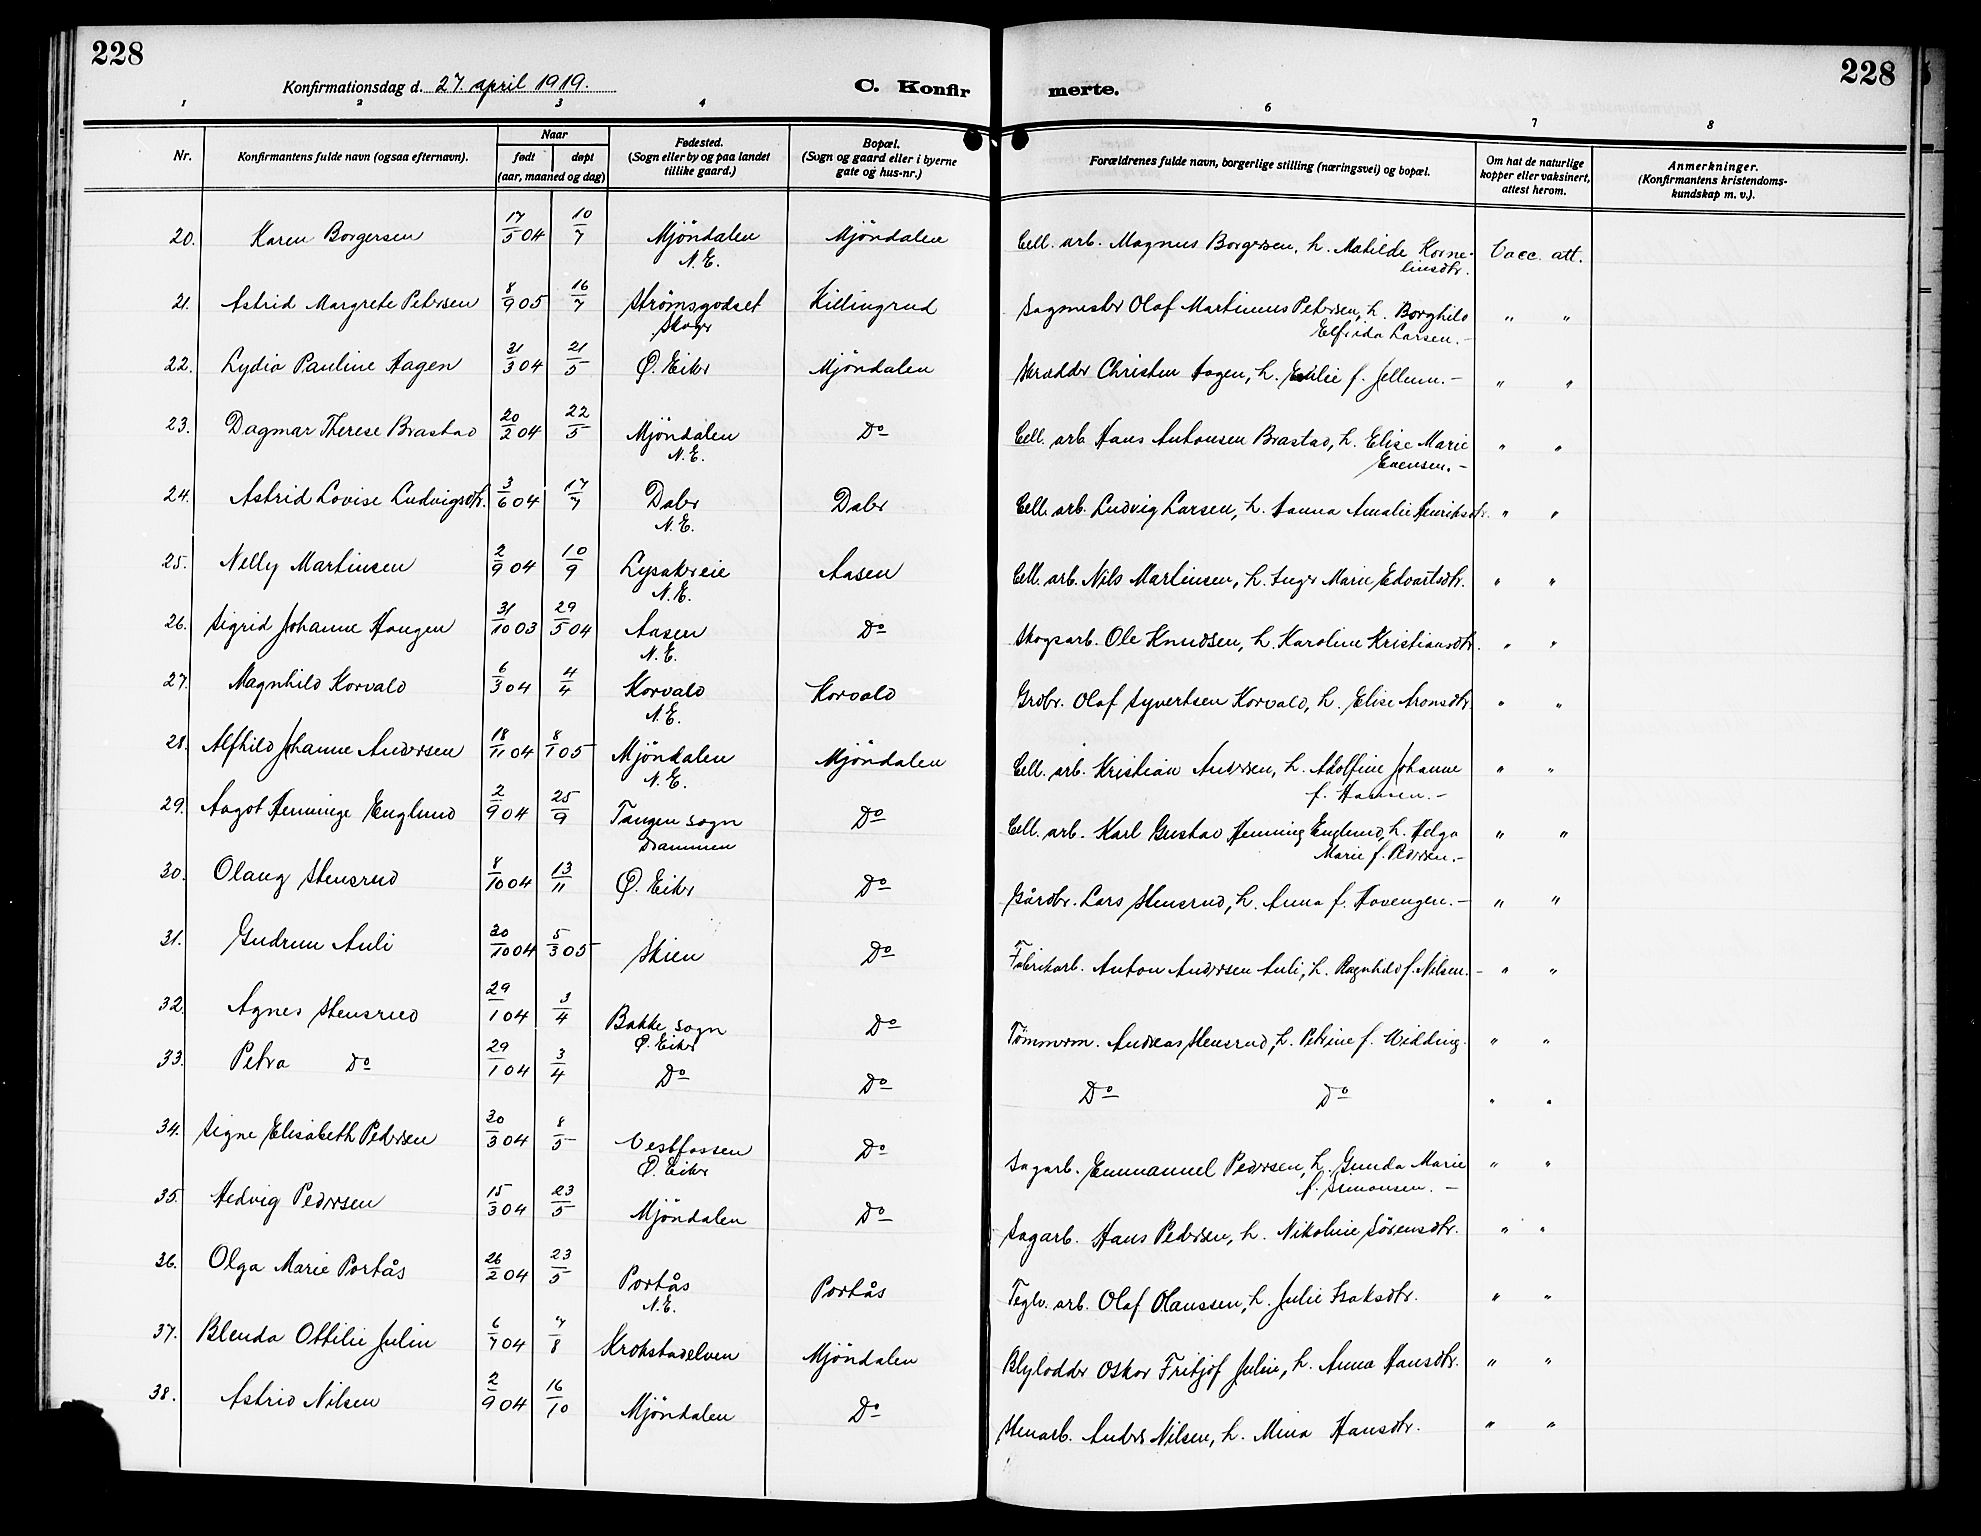 228
228
Konfirmationsdag d. 27. april 1919.
C. Konfir
merte.
1 2 3 4 6 7 8
Nr. Konfirmantens fulde navn (ogsaa efternavn). Naar født døpt (aar, maaned og dag) Fødested. (Sogn eller by og paa landet tillike gaard.) Bopæl. (Sogn og gaard eller i byerne gate og hus-nr.) Forældrenes fulde navn, borgerlige stilling (næringsvei) og bopæl. Om hat de naturlige kopper eller vaksinert, attest herom. Anmerkninger. (Konfirmantens kristendoms-kundskap m. v.).
20. Karen Borgersen 17/5 04 10/7 Mjöndalen Mjöndalen Cell. arb. Magnus Borgersen, h. Matilde Korne- Vacc. att.
N. E. liusdtr.
21. Astrid Margrete Petersen 8/9 05 16/7 Strömsgodset Killingrud Sagmester Olaf Martinius Petersen, h. Borghild " "
Skoger Elfrida Larsen. –
22. Lydia Pauline Hagen 31/3 04 21/5 Ø. Eiker Mjöndalen Skrædder Christen Hagen, h. Emilie f. Jellum. – " "
23. Dagmar Therese Brastad 20/2 04 22/5 Mjöndalen Do Cell. arb. Hans Antonsen Brastad, h. Elise Marie " "
N. E. Evensen. –
24. Astrid Lovise Ludvigsdtr. 3/6 04 17/7 Daler Daler Cell. arb. Ludvig Larsen, h. Hanna Amalie Henriksdtr. " "
N. E.
25. Nelly Martinsen 2/9 04 10/9 Lysakereie Aasen Cell. arb. Nils Martinsen, h. Inger Marie Edvartsdtr. " "
N. E.
26. Sigrid Johanne Haugen 31/10 03 29/5 04 Aasen Do Skogsarb. Ole Knudsen, h. Karoline Kristiansdtr. " "
N. E.
27. Magnhild Korvald 6/3 04 4/4 Korvald Korvald Grdbr. Olaf Syvertsen Korvald, h. Elise Aronsdtr. " "
N. E.
28. Alfhild Johanne Andersen 18/11 04 8/1 05 Mjöndalen Mjöndalen Cell. arb. Kristian Andersen, h. Adolfine Johanne " "
N. E. f. Hansen. –
29. Aagot Henninge Englund 2/9 04 25/9 Tangen sogn Do Cell. arb. Karl Gustav Henning Englund, h. Helga " "
Drammen Marie f. Pedersen. –
30. Olaug Stensrud 8/10 04 13/11 Ø. Eiker Do Gårdbr. Lars Stensrud, h. Anna f. Hovengen. – " "
31. Gudrun Auli 30/10 04 5/3 05 Skien Do Fabrikarb. Anton Andersen Auli, h. Ragnhild f. Nilsen. – " "
32. Agnes Stensrud 29/1 04 3/4 Bakke sogn Do Tömmerm. Andreas Stensrud, h. Petrine f. Widding. " "
Ø. Eiker
33. Petra Do 29/1 04 3/4 Do Do Do Do " "
34. Signe Elisabeth Pedersen 30/3 04 8/5 Vestfossen Do Sagarb. Emmanuel Pedersen, h. Gunda Marie " "
Ø. Eiker f. Simonsen. –
35. Hedvig Pedersen 15/3 04 23/5 Mjöndalen Do Sagarb. Hans Pedersen, h. Nikoline Sörensdtr. " "
36. Olga Marie Portås 26/2 04 23/5 Portås Portås Teglv. arb. Olaf Olaussen, h. Julie Isaksdtr. " "
N. E.
37. Blenda Ottilie Julin 6/7 04 7/8 Krokstadelven Mjöndalen Blylodder Oskar Fritjof Julin, h. Anna Hansdtr. " "
38. Astrid Nilsen 2/9 04 16/10 Mjöndalen Do Stenarb. Anders Nilsen, h. Mina Hansdtr. " "